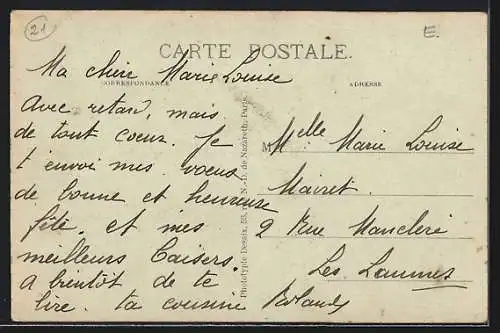 21
E.
CARTE POSTALE.
CORRESPONDANCE
ADRESSE
Ma chère Marie Louise
Avec retard, mais
de tout coeur. Je
t'envoi mes voeux
de bonne et heureuse
fête. et mes
meilleurs baisers.
A bientôt de te
lire. ta cousine
Photolypie Dessaix, N.-D. de Nazareth, Paris
Melle Marie Louise
Mairet.
2 Rue
Les Laumes